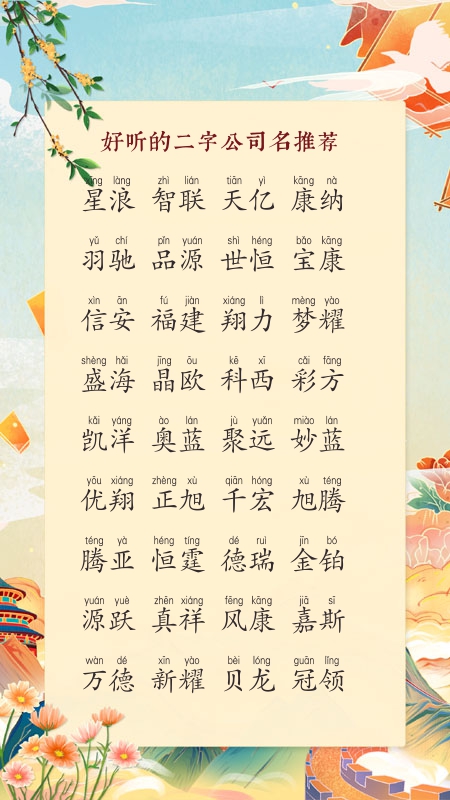 好听的二字公司名推荐
xīng làng zhì lián tiān yì kāng nà
星浪 智联 天亿 康纳
yǔ chí pǐn yuán shì héng bǎo kāng
羽驰 品源 世恒 宝康
xìn ān fú jiàn xiáng lì mèng yào
信安 福建 翔力 梦耀
shèng hǎi jīng ōu kē xī cǎi fāng
盛海 晶欧 科西 彩方
kǎi yáng ào lán jù yuǎn miào lán
凯洋 奥蓝 聚远 妙蓝
yōu xiáng zhèng xù qiān hóng xù téng
优翔 正旭 千宏 旭腾
téng yà héng tíng dé ruì jīn bó
腾亚 恒霆 德瑞 金铂
yuán yuè zhēn xiáng fēng kāng jiā sī
源跃 真祥 风康 嘉斯
wàn dé xīn yào bèi lóng guān lǐng
万德 新耀 贝龙 冠领